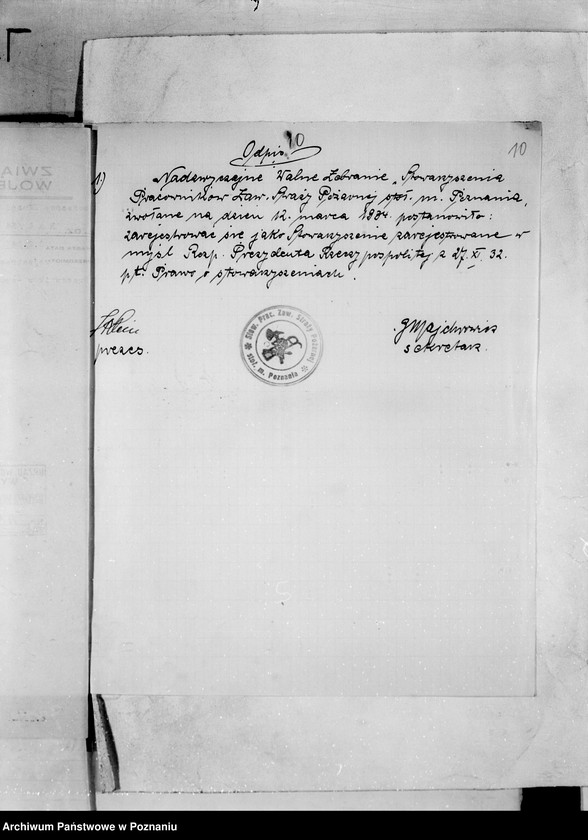 10
Odpis
10
1) Nadzwyczajne Walne Zebranie "Stowarzyszenia
Pracowników Zaw. Straży Pożarnej stoł. m. Poznania,
zwołane na dzień 12. marca 1934. postanowiło:
zarejestrować się jako Stowarzyszenie zarejestrowane w
myśl Rozp. Prezydenta Rzeczypospolitej z 27. XI. 32.
pt. Prawo o stowarzyszeniach.
prezes.
Stow. Prac. Zaw. Straży Pożarnej
stoł. m. Poznania
J Majchrzak
sekretarz.
ZWIĄ
WOJE
Archiwum Państwowe w Poznaniu